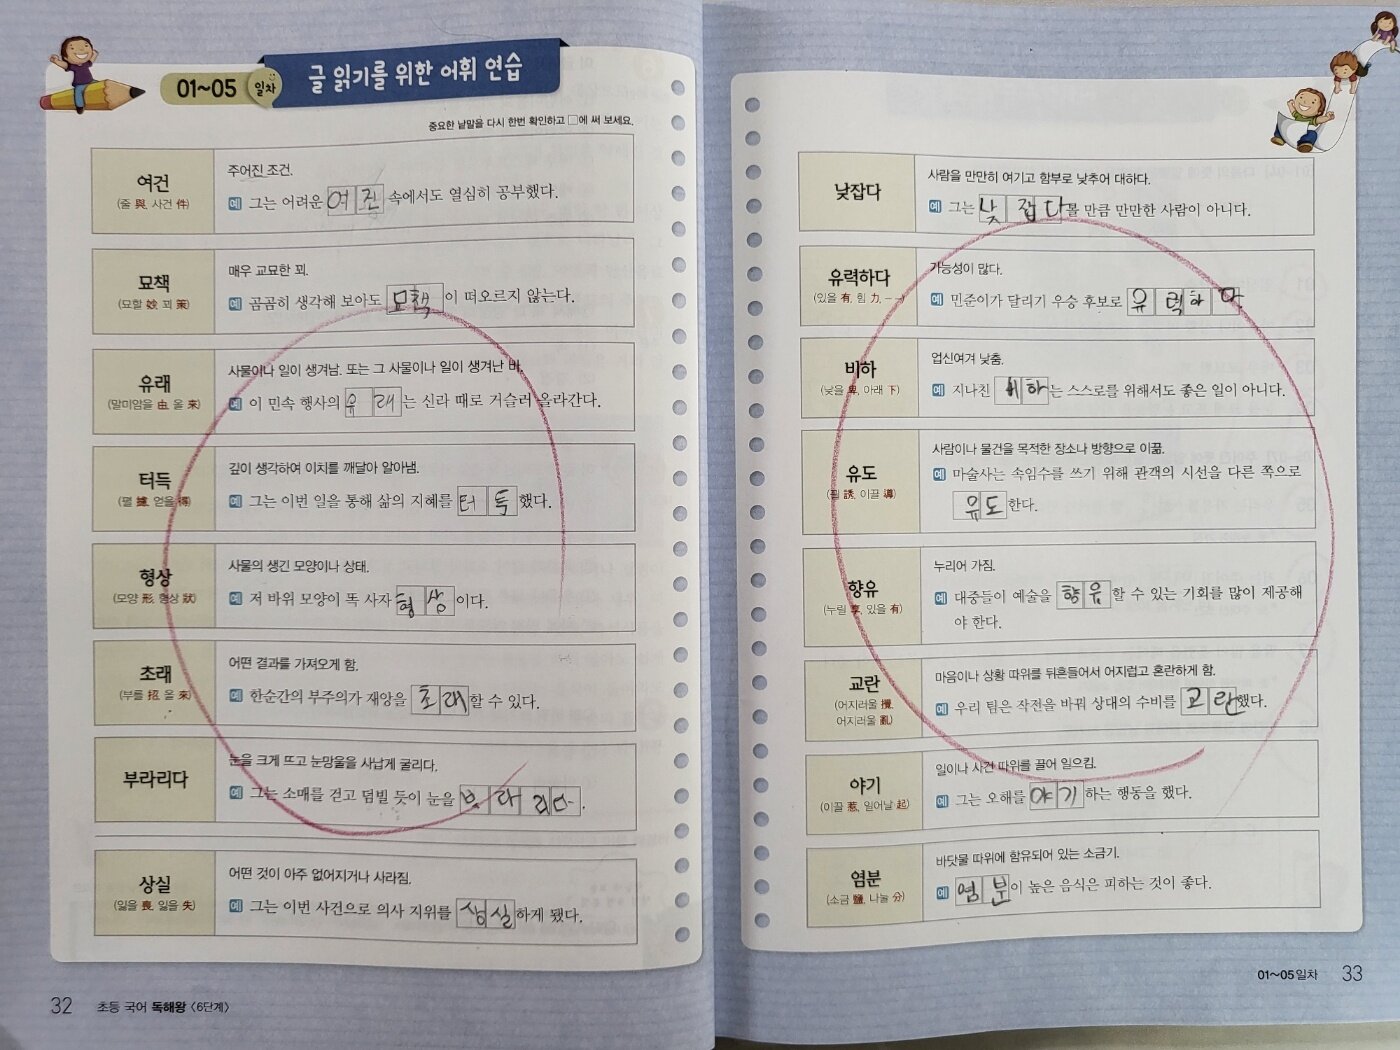 01~05 일차
글 읽기를 위한 어휘 연습
중요한 낱말을 다시 한번 확인하고 □에 써 보세요.
여건
(줄 與, 사건 件)
주어진 조건.
예 그는 어려운 여건 속에서도 열심히 공부했다.
묘책
(묘할 妙, 꾀 策)
매우 교묘한 꾀.
예 곰곰히 생각해 보아도 묘책이 떠오르지 않는다.
유래
(말미암을 由, 올 來)
사물이나 일이 생겨남. 또는 그 사물이나 일이 생겨난 바.
예 이 민속 행사의 유래는 신라 때로 거슬러 올라간다.
터득
(펼 攄, 얻을 得)
깊이 생각하여 이치를 깨달아 알아냄.
예 그는 이번 일을 통해 삶의 지혜를 터득했다.
형상
(모양 形, 형상 狀)
사물의 생긴 모양이나 상태.
예 저 바위 모양이 똑 사자 형상이다.
초래
(부를 招, 올 來)
어떤 결과를 가져오게 함.
예 한순간의 부주의가 재앙을 초래할 수 있다.
부라리다
눈을 크게 뜨고 눈망울을 사납게 굴리다.
예 그는 소매를 걷고 덤빌 듯이 눈을 부라리다.
상실
(잃을 喪, 잃을 失)
어떤 것이 아주 없어지거나 사라짐.
예 그는 이번 사건으로 의사 지위를 상실하게 됐다.
32 초등 국어 독해왕 〈6단계〉
낮잡다
사람을 만만히 여기고 함부로 낮추어 대하다.
예 그는 낮잡다볼 만큼 만만한 사람이 아니다.
유력하다
(있을 有, 힘 力, ㅡㅡ)
가능성이 많다.
예 민준이가 달리기 우승 후보로 유력하다.
비하
(낮을 卑, 아래 下)
업신여겨 낮춤.
예 지나친 비하는 스스로를 위해서도 좋은 일이 아니다.
유도
(꾈 誘, 이끌 導)
사람이나 물건을 목적한 장소나 방향으로 이끎.
예 마술사는 속임수를 쓰기 위해 관객의 시선을 다른 쪽으로
유도한다.
향유
(누릴 享, 있을 有)
누리어 가짐.
예 대중들이 예술을 향유할 수 있는 기회를 많이 제공해
야 한다.
교란
(어지러울 攪,
어지러울 亂)
마음이나 상황 따위를 뒤흔들어서 어지럽고 혼란하게 함.
예 우리 팀은 작전을 바꿔 상대의 수비를 교란했다.
야기
(이끌 惹, 일어날 起)
일이나 사건 따위를 끌어 일으킴.
예 그는 오해를 야기하는 행동을 했다.
염분
(소금 鹽, 나눌 分)
바닷물 따위에 함유되어 있는 소금기.
예 염분이 높은 음식은 피하는 것이 좋다.
01~05일차 33